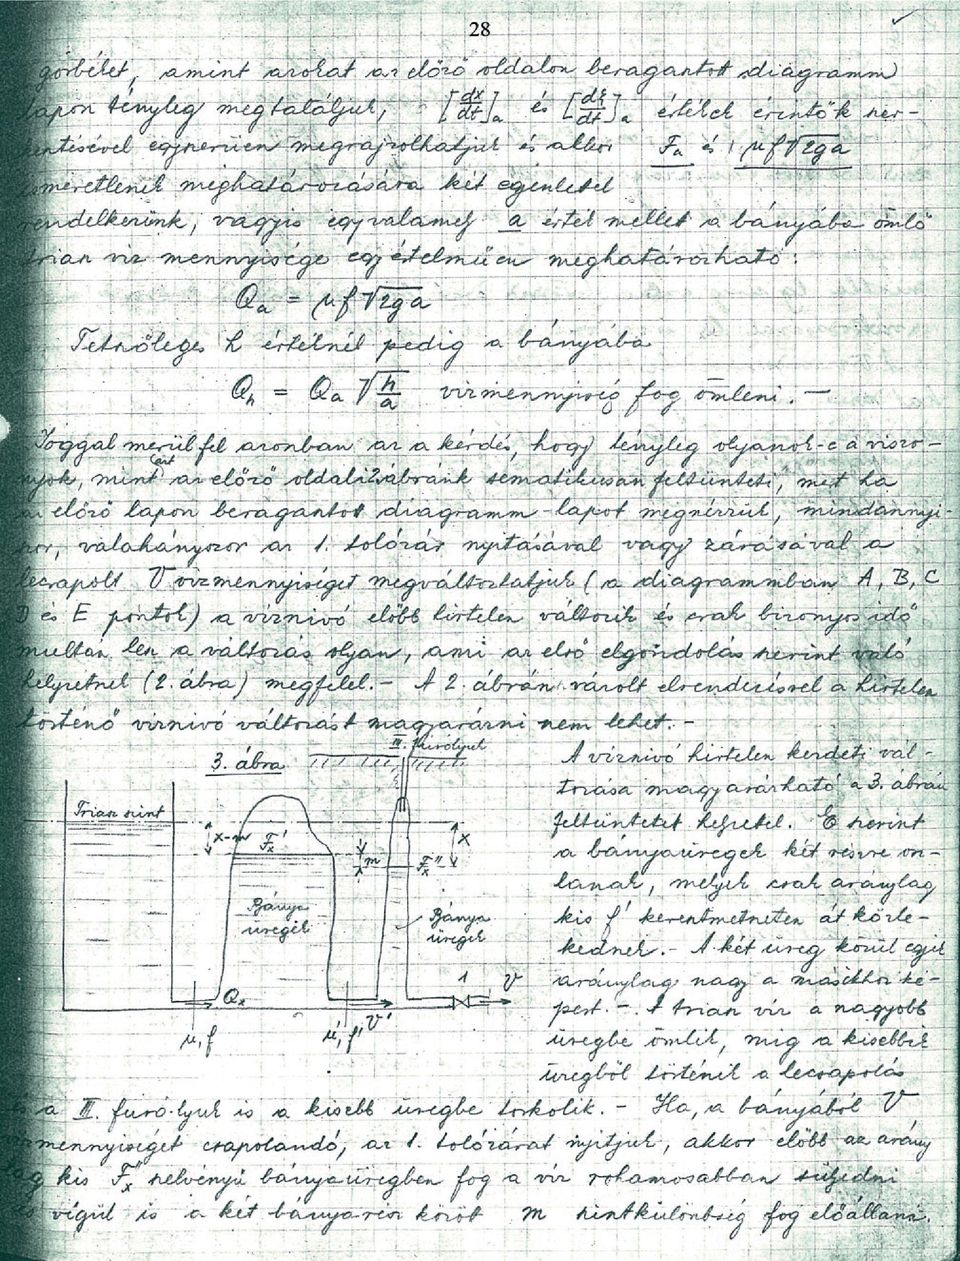 28
görbéket, amint azokat az előző oldalon beragasztott diagramm
lapon tényleg megtaláljuk, [dx/dt]a és [dξ/dt]a értékek érintők szer-
kentésével egyszerüen megrajzolhatjuk és akkor Fa és μf√2ga
ismeretlenek meghatározására két egenlettel
rendelkezünk, vagyis egy valamely a érték mellett a bányába ömlő
trian víz mennyisége egyértelmüen meghatározható:
Qa = μf√2ga
Tetszőleges h értéknél pedig a bányába
Qh = Qa √h/a vízmennyiség fog ömleni. —
Joggal merül fel azonban az a kérdés, hogy tényleg olyanok-e a viszo-
nyok, mint azt az előző oldali 2 ábránk sematikusan feltünteti, mert ha
az előző lapon beragasztott diagramm-lapot megnézzük, mindannyi-
szor, valahányszor az 1. tolózár nyitásával vagy zárásával a
lecsapolt V vízmennyiséget megváltoztatjuk (a diagrammban A, B, C
D és E pontok) a víznivó előbb hirtelen változik és csak bizonyos idő
multán lesz a változás olyan, ami az első elgondolás szerint való
helyzetnek (2. ábra) megfelel. - A 2. ábrán vázolt elrendezéssel a hirtelen
történő víznivó változást magyarázni nem lehet. -
3. ábra
III. furólyuk
Triasz szint
x-m
F'x
m
F"x
x
Bánya
üregek
Bánya
üregek
Qx
μ, f
μ', f'
V'
1
V
A víznivó hirtelen kezdeti vál-
tozása magyarázható a 3. ábrán
feltüntetett helyzettel. E szerint
a bányaüregek két részre osz-
lanak, melyek csak aránylag
kis f' keresztmetszeten át közle-
kednek. - A két üreg közül egyik
aránylag nagy a másikhoz ké-
pest. -. A trian víz a nagyobb
üregbe ömlik, míg a kisebbik
üregből történik a lecsapolás
és a III. furó-lyuk is a kisebb üregbe torkolik. - Ha, a bányából V
vízmennyiséget csapolandó, az 1. tolózárat nyitjuk, akkor előbb az arány
lag kis F"x szelvényü bányaüregben fog a víz rohamosabban sülyedni
és végül is a két bányarész között m szintkülönbség fog előállani.